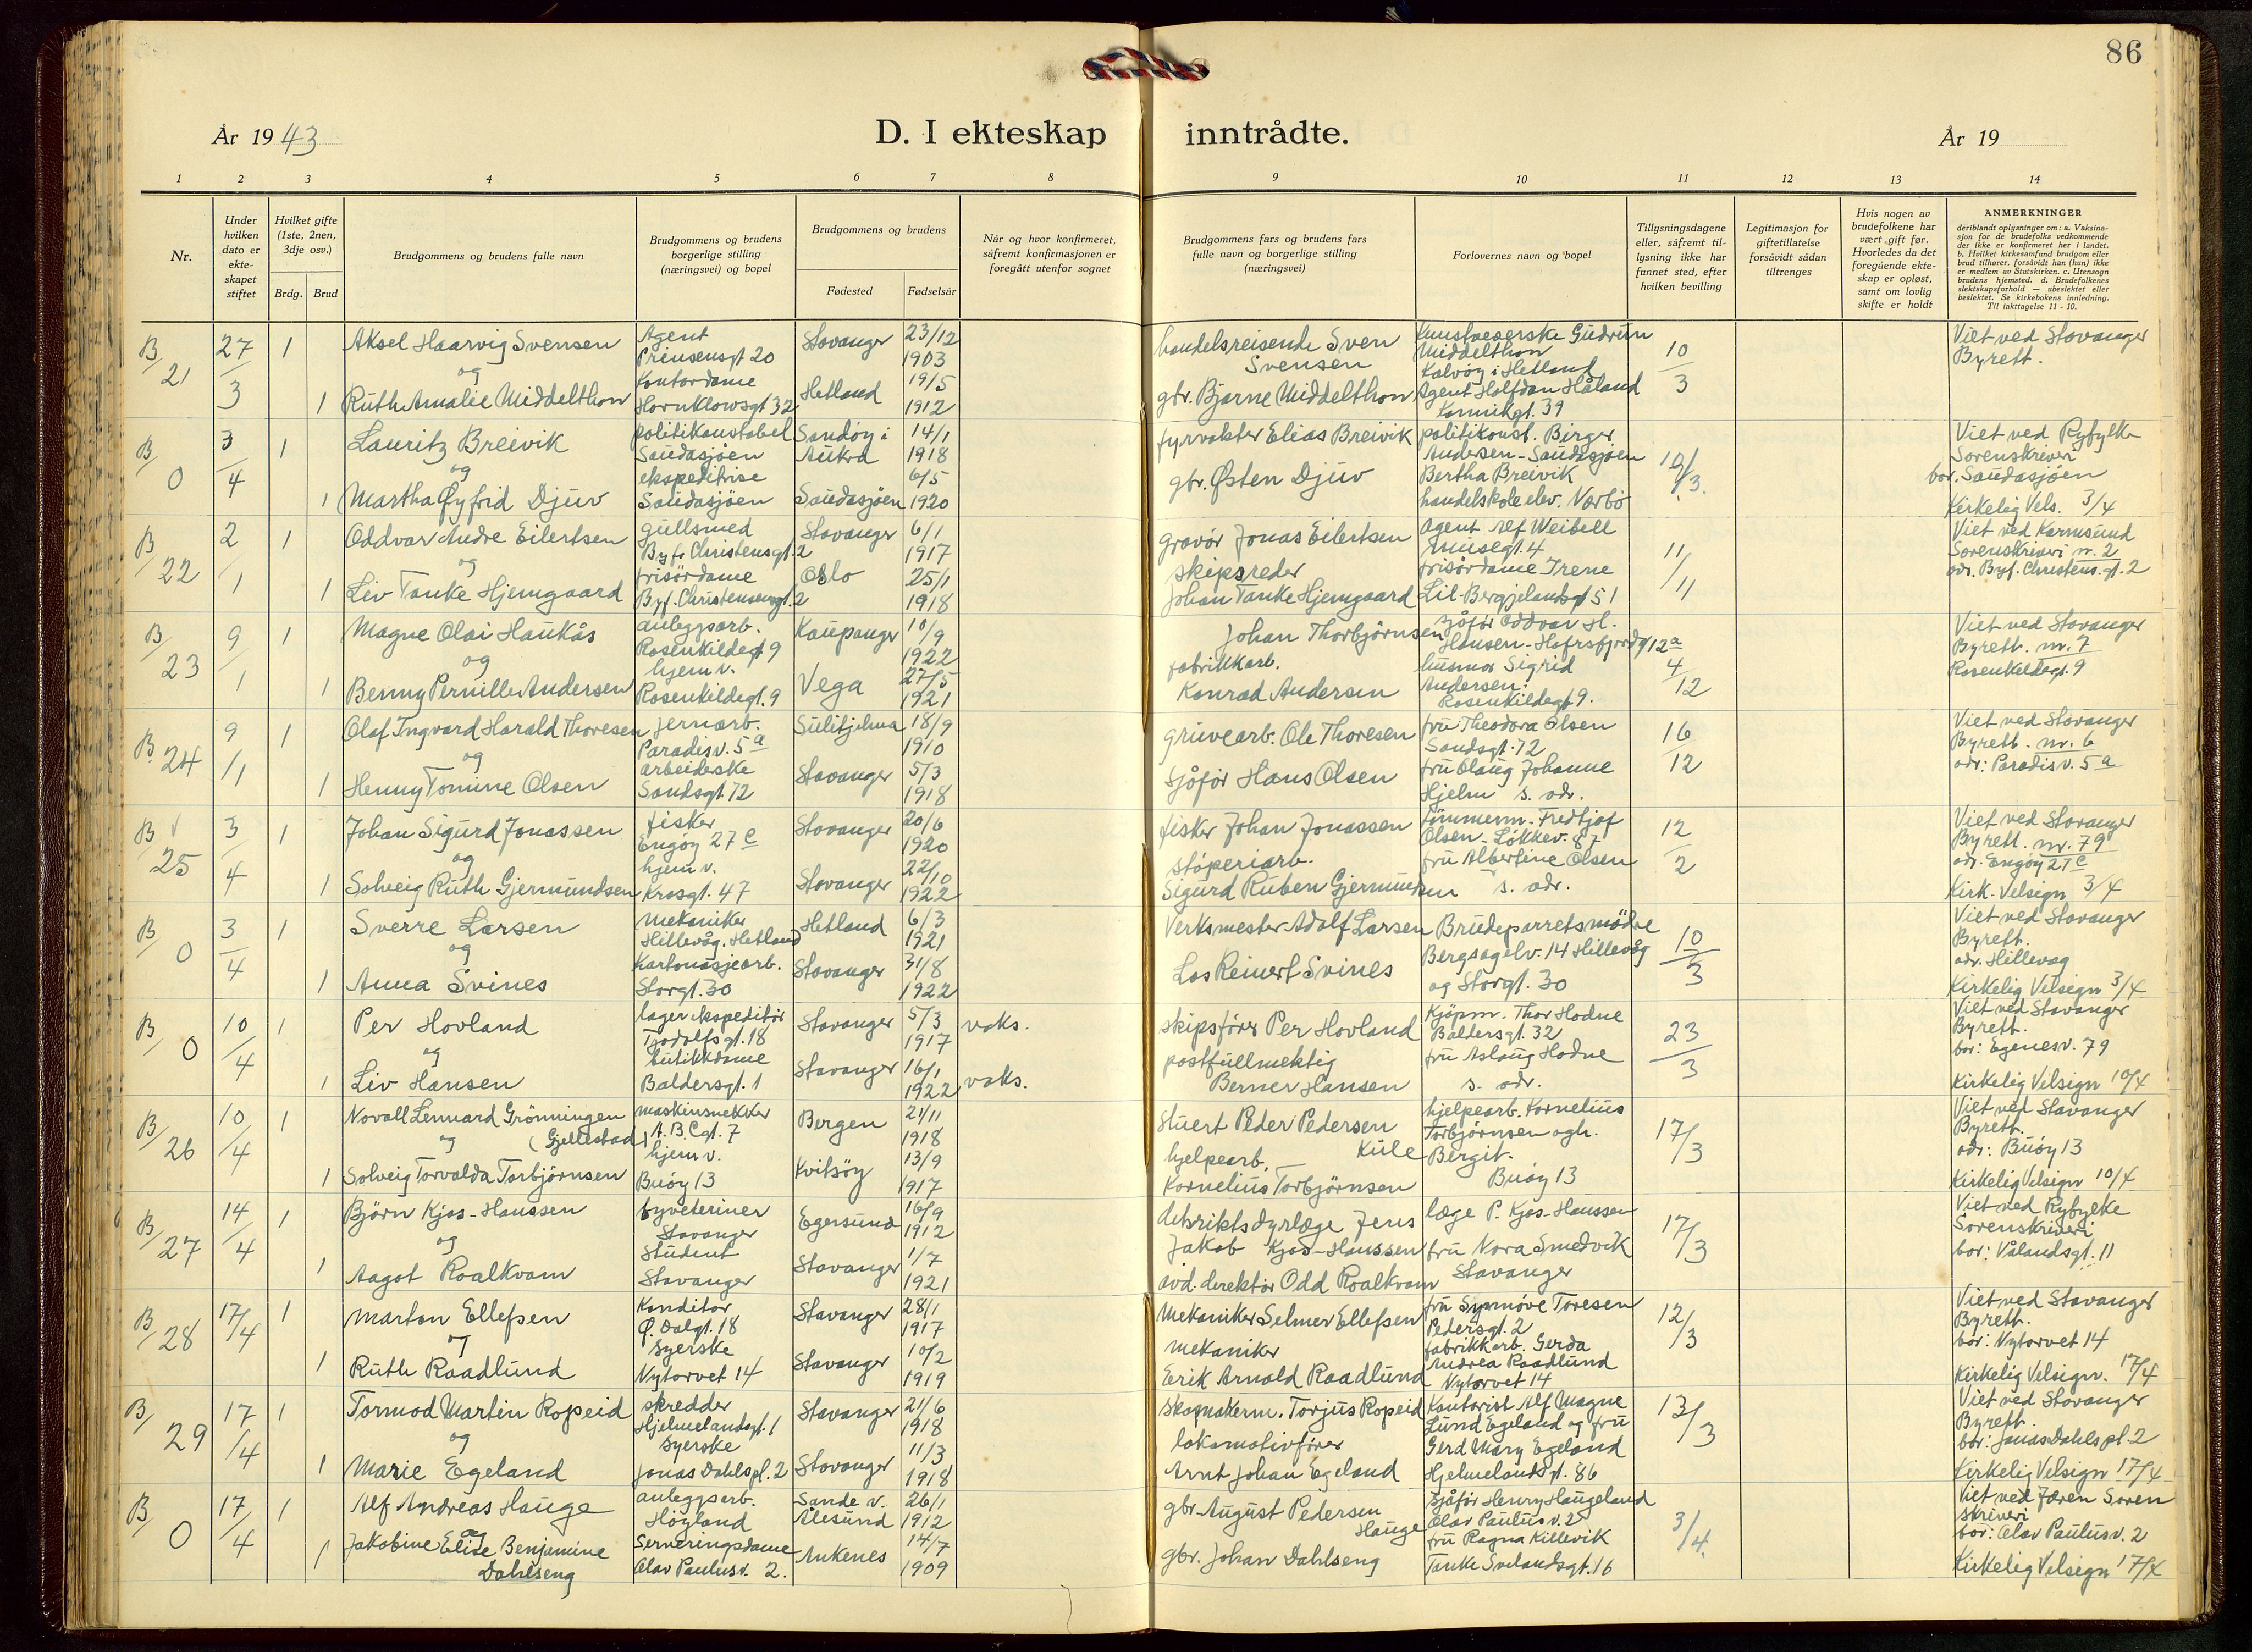 86
År 19 43
D. I ekteskap inntrådte.
År 19
1 2 3 4 5 6 7 8 9 10 11 12 13 14
Nr.
Under hvilken dato er ekte-skapet stiftet
Hvilket gifte (1ste, 2nen, 3dje osv.)
Brdg. Brud
Brudgommens og brudens fulle navn
Brudgommens og brudens borgerlige stilling (næringsvei) og bopel
Brudgommens og brudens
Fødested Fødselsår
Når og hvor konfirmeret, såfremt konfirmasjonen er foregått utenfor sognet
Brudgommens fars og brudens fars fulle navn og borgerlige stilling (næringsvei)
Forlovernes navn og bopel
Tillysningsdagene eller, såfremt til-lysning ikke har funnet sted, efter hvilken bevilling
Legitimasjon for giftetillatelse forsåvidt sådan tiltrenges
Hvis nogen av brudefolkene har vært gift før. Hvorledes da det foregående ekte-skap er opløst, samt om lovlig skifte er holdt
ANMERKNINGER
deriblandt oplysninger om: a. Vaksina-sjon for de brudefolks vedkommende der ikke er konfirmeret her i landet. b. Hvilket kirkesamfund brudgom eller brud tilhører, forsåvidt han (hun) ikke er medlem av Statskirken. c. Utensogn brudens hjemsted. d. Brudefolkenes slektskapsforhold — ubeslektet eller beslektet. Se kirkebokens innledning. Til iakttagelse 11 - 10.
B/21 27/3 1 Aksel Haarvig Svensen Agent Prinsensgt 20 Stavanger 23/12 1903 handelsreisende Sven Svensen Gudrun Middelthon Kalvøy i Hetland 10/3 Viet ved Stavanger Byrett.
og
1 Ruth Amalie Middelthon Kontordame Hornklowsgt 32 Hetland 19/5 1912 gbr. Bjarne Middelthon Agent Halfdan Håland Kannikgt. 39
B/0 3/4 1 Lauritz Breivik politikonstabel Saudasjøen Sandøy i Aukra 14/1 1918 fyrvokter Elias Breivik politikonst. Birger Andersen - Saudasjøen Viet ved Ryfylke Sorenskriveri
og
1 Martha Øyfrid Djuv ekspeditrise Saudasjøen Saudasjøen 6/5 1920 gbr. Østen Djuv Bertha Breivik handelskole elev. Varbø bor. Saudasjøen Kirkelig Vels. 3/4
B/22 2/1 1 Oddvar Andre Eilertsen gullsmed Byfr Christensgt. 2 Stavanger 6/1 1917 gravør Jonas Eilertsen Agent Alf Weibell Musegt. 4 11/11 Viet ved Karmsund Sorenskriveri nr. 2
og
1 Liv Tanke Hjemgaard frisørdame Byf. Christensensgt. 2 Oslo 25/1 1918 skipsreder Johan Tanke Hjemgaard frisørdame Irene Lil- Bergjelandsgt 51 adr. Byf. Christens. gt. 2
B/23 9/1 1 Magne Olai Haukås anleggsarb. Rosenkildegt 9 Kaupanger 10/9 1922 Johan Thorbjørnsen sjåfør Oddvar H. Hansen - Hafrsfjordgt 12a 4/12 Viet ved Stavanger Byrett. nr. 7
og
1 Benny Pernille Andersen hjem v. Rosenkildegt. 9 Vega 27/5 1921 fabrikkarb. Konrad Andersen husmor Sigrid Andersen. Rosenkildegt 9. Rosenkildegt. 9
B/24 9/1 1 Olaf Ingvard Harald Thoresen jernarb. Paradisv. 5a Sulitjelma 18/9 1910 gruvearb. Ole Thoresen fru Theodora Olsen Sandsgt. 72 16/12 Viet ved Stavanger Byrett. nr. 6
og
1 Henny Tomine Olsen arbeideske Sandsgt. 72 Stavanger 5/3 1918 sjåfør Hans Olsen fru Olaug Johanne Hjelm s. adr. adr: Paradisv. 5a
B/25 3/4 1 Johan Sigurd Jonassen fisker Engøy 27c Stavanger 20/6 1920 fisker Johan Jonassen tømmerm. Fredtjof Olsen - Løkkev. 87 12/2 Viet ved Stavanger Byrett. nr. 79
og
1 Solveig Ruth Gjermundsen hjem v. Krosgt. 47 Stavanger 22/10 1922 støperiarb. Sigurd Ruben Gjermundsen fru Albertine Olsen s. adr. adr. Engøy 27c Kirk. Velsign 3/4
B/0 3/4 1 Sverre Larsen mekaniker Hillevåg. Hetland Hetland 6/3 1921 Verksmester Adolf Larsen Brudeparrets mødre 10/3 Viet ved Stavanger Byrett.
og
1 Anna Svines Kartonasjearb. Storgt. 30 Stavanger 31/8 1922 Los Reinert Svines Bergsagelv. 14 Hillevåg og Storgt. 30 adr. Hillevåg Kirkelig Velsign 3/4
B/0 10/4 1 Per Hovland lagerekspeditør Tjodolfsgt. 18 Stavanger 5/3 1917 vaks. skipsfører Per Hovland Kjøpm. Thor Hodne Baldersgt. 32 23/3 Viet ved Stavanger Byrett.
og
1 Liv Hansen butikkdame Baldersgt. 1 Stavanger 16/1 1922 vaks. postfullmektig Berner Hansen fru Aslaug Hodne s. adr. bor: Egenesv. 79 Kirkelig Velsign 10/4
B/26 10/4 1 Novall Lennard Grønningen (Gjellestad) maskinsnekker A.B.C gt. 7 Bergen 21/11 1918 Stuert Peder Pedersen Kule hjelpearb. Kornelius Torbjørnsen og h. 17/3 Viet ved Stavanger Byrett.
og
1 Solveig Torvalda Torbjørnsen hjem v. Buøy 13 Kvitsøy 13/9 1917 hjelpearb. Kornelius Torbjørnsen Bergit. Buøy 13 adr: Buøy 13 Kirkelig Velsign 10/4
B/27 14/4 1 Bjørn Kjos-Hanssen byveterinær Stavanger Egersund 16/9 1912 distriktsdyrlæge Jens Jakob Kjos-Hanssen læge P. Kjos-Hanssen 17/3 Viet ved Ryfylke Sorenskriveri
og
1 Aagot Roalkvam Student Stavanger Stavanger 1/7 1921 avd. direktør Odd Roalkvam fru Nora Smedvik Stavanger bor: Vålandsgt. 11
B/28 17/4 1 Marton Ellefsen Konditor Ø. Dalgt. 18 Stavanger 28/1 1917 Mekaniker Selmer Ellefsen fru Synnøve Toresen Pedersgt. 2 12/3 Viet ved Stavanger Byrett.
og
1 Ruth Raadlund Syerske Nytorvet 14 Stavanger 10/2 1919 mekaniker Erik Arnold Raadlund fabrikkarb. Gerda Andrea Raadlund Nytorvet 14 bor: Nytorvet 14 Kirkelig Velsign. 17/4
B/29 17/4 1 Tormod Martin Ropeid skredder Hjelmelandsgt. 1 Stavanger 21/6 1918 Skomakerm. Torjus Ropeid Kontorist Alf Magne Lund Egeland og fru 13/3 Viet ved Stavanger Byrett.
og
1 Marie Egeland Syerske Jonas Dahls pl. 2 Stavanger 11/3 1918 lokomotivfører Arnt Johan Egeland Gerd Mary Egeland Hjelmelandsgt. 86 bor: Jonas Dahls pl. 2 Kirkelig Velsign 17/4
B/0 17/4 1 Alf Andreas Hauge anleggsarb. Høyland Sande v. Ålesund 26/1 1912 gbr. August Pedersen Hauge sjåfør Henry Haugeland Olav Paulus v. 2 3/4. Viet ved Jæren Soren skriveri
og
1 Jakobine Elise Benjamine Dahlseng Serveringsdame Olav Paulusv. 2. Ankenes 14/7 1909 gbr. Johan Dahlseng fru Ragna Killevik Tanke Svilandsgt. 16 bor: Olav Paulusv. 2 Kirkelig Velsign 17/4